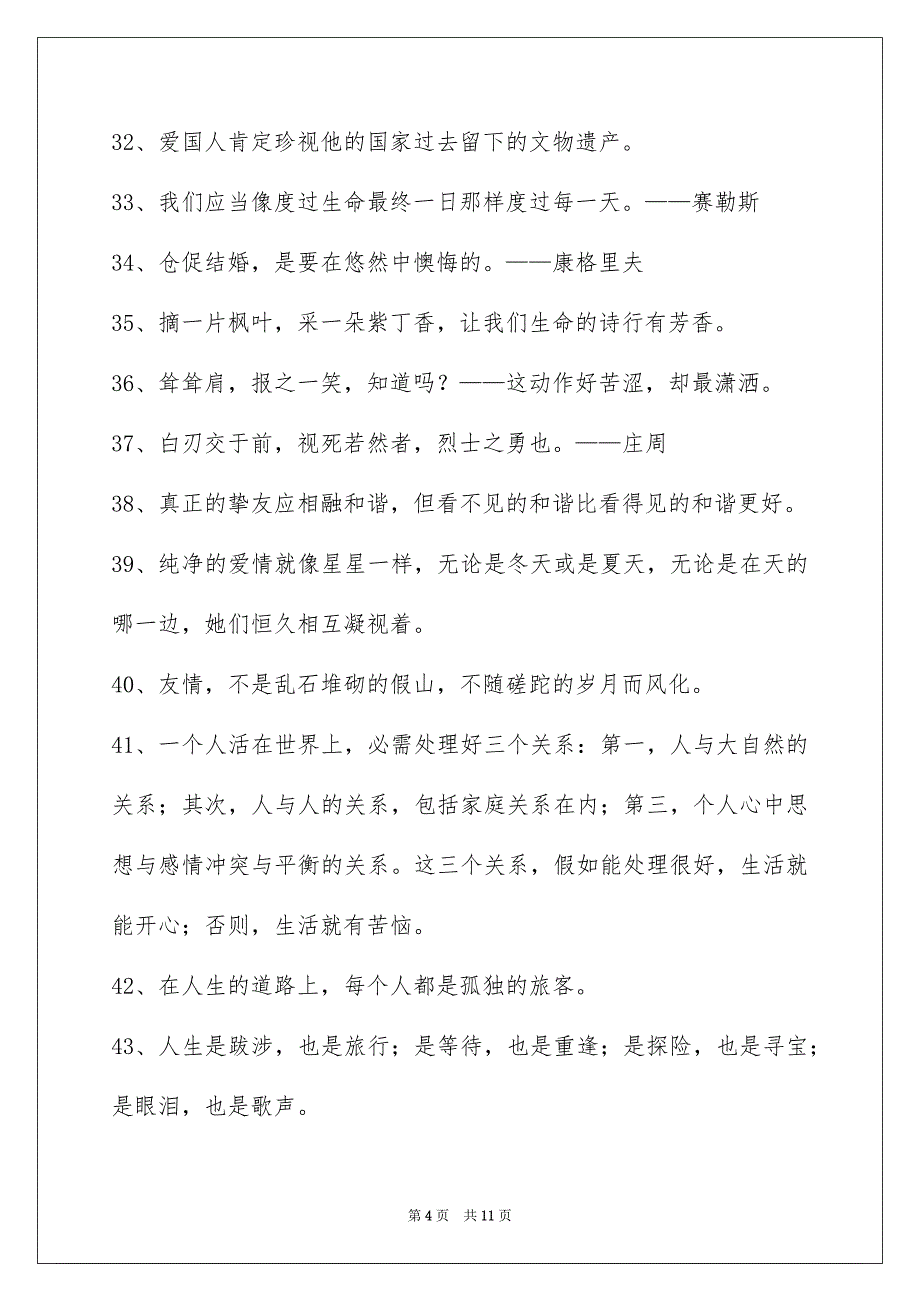 32、爱国人肯定珍视他的国家过去留下的文物遗产。
33、我们应当像度过生命最终一日那样度过每一天。——赛勒斯
34、仓促结婚，是要在悠然中懊悔的。——康格里夫
35、摘一片枫叶，采一朵紫丁香，让我们生命的诗行有芳香。
36、耸耸肩，报之一笑，知道吗？——这动作好苦涩，却最潇洒。
37、白刃交于前，视死若然者，烈士之勇也。——庄周
38、真正的挚友应相融和谐，但看不见的和谐比看得见的和谐更好。
39、纯净的爱情就像星星一样，无论是冬天或是夏天，无论是在天的
哪一边，她们恒久相互凝视着。
40、友情，不是乱石堆砌的假山，不随磋跎的岁月而风化。
41、一个人活在世界上，必需处理好三个关系：第一，人与大自然的
关系；其次，人与人的关系，包括家庭关系在内；第三，个人心中思
想与感情冲突与平衡的关系。这三个关系，假如能处理很好，生活就
能开心；否则，生活就有苦恼。
42、在人生的道路上，每个人都是孤独的旅客。
43、人生是跋涉，也是旅行；是等待，也是重逢；是探险，也是寻宝；
是眼泪，也是歌声。
第 4 页 共 11 页